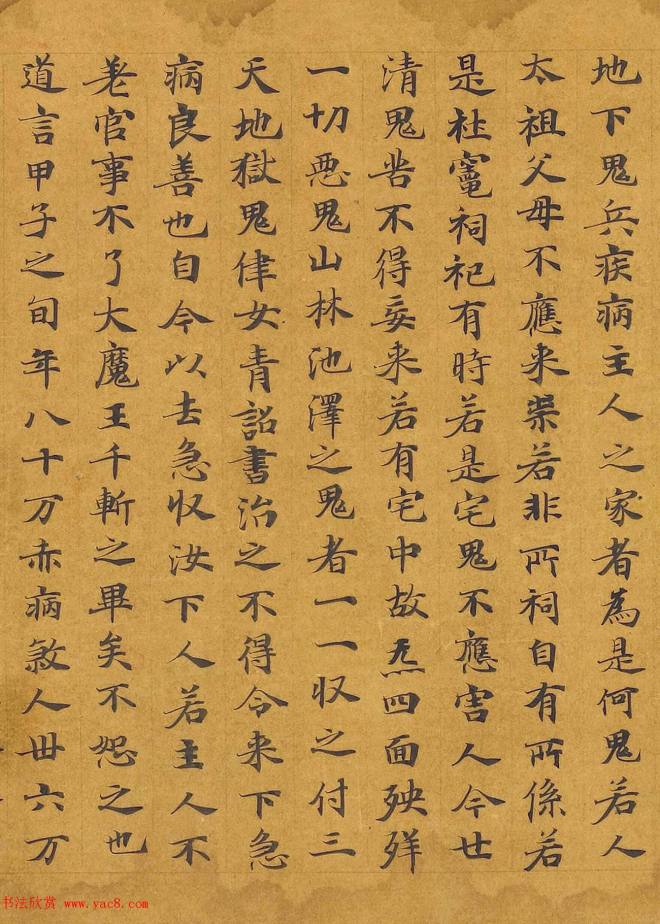 地下鬼兵疾病主人之家者為是何鬼若人
太祖父母不應来祟若非所祠自有所係若
是社竈祠祀有時若是宅鬼不應害人今世
清鬼皆不得妄来若有宅中故炁四面殃祥
一切惡鬼山林池澤之鬼者一一收之付三
天地獄鬼律女青詔書治之不得令来下急
病良善也自今以去急收汝下人若主人不
差官事不了大魔王千斬之畢矣不恕之也
道言甲子之旬年八十万赤病煞人卅六万
书法欣赏 www.yac8.com